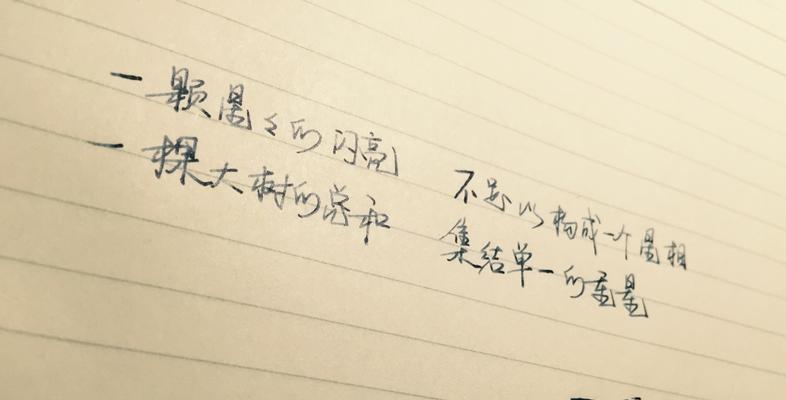 一颗星星的闪亮 不足以构成一个星相
一棵大树的总和 集结单一的重量